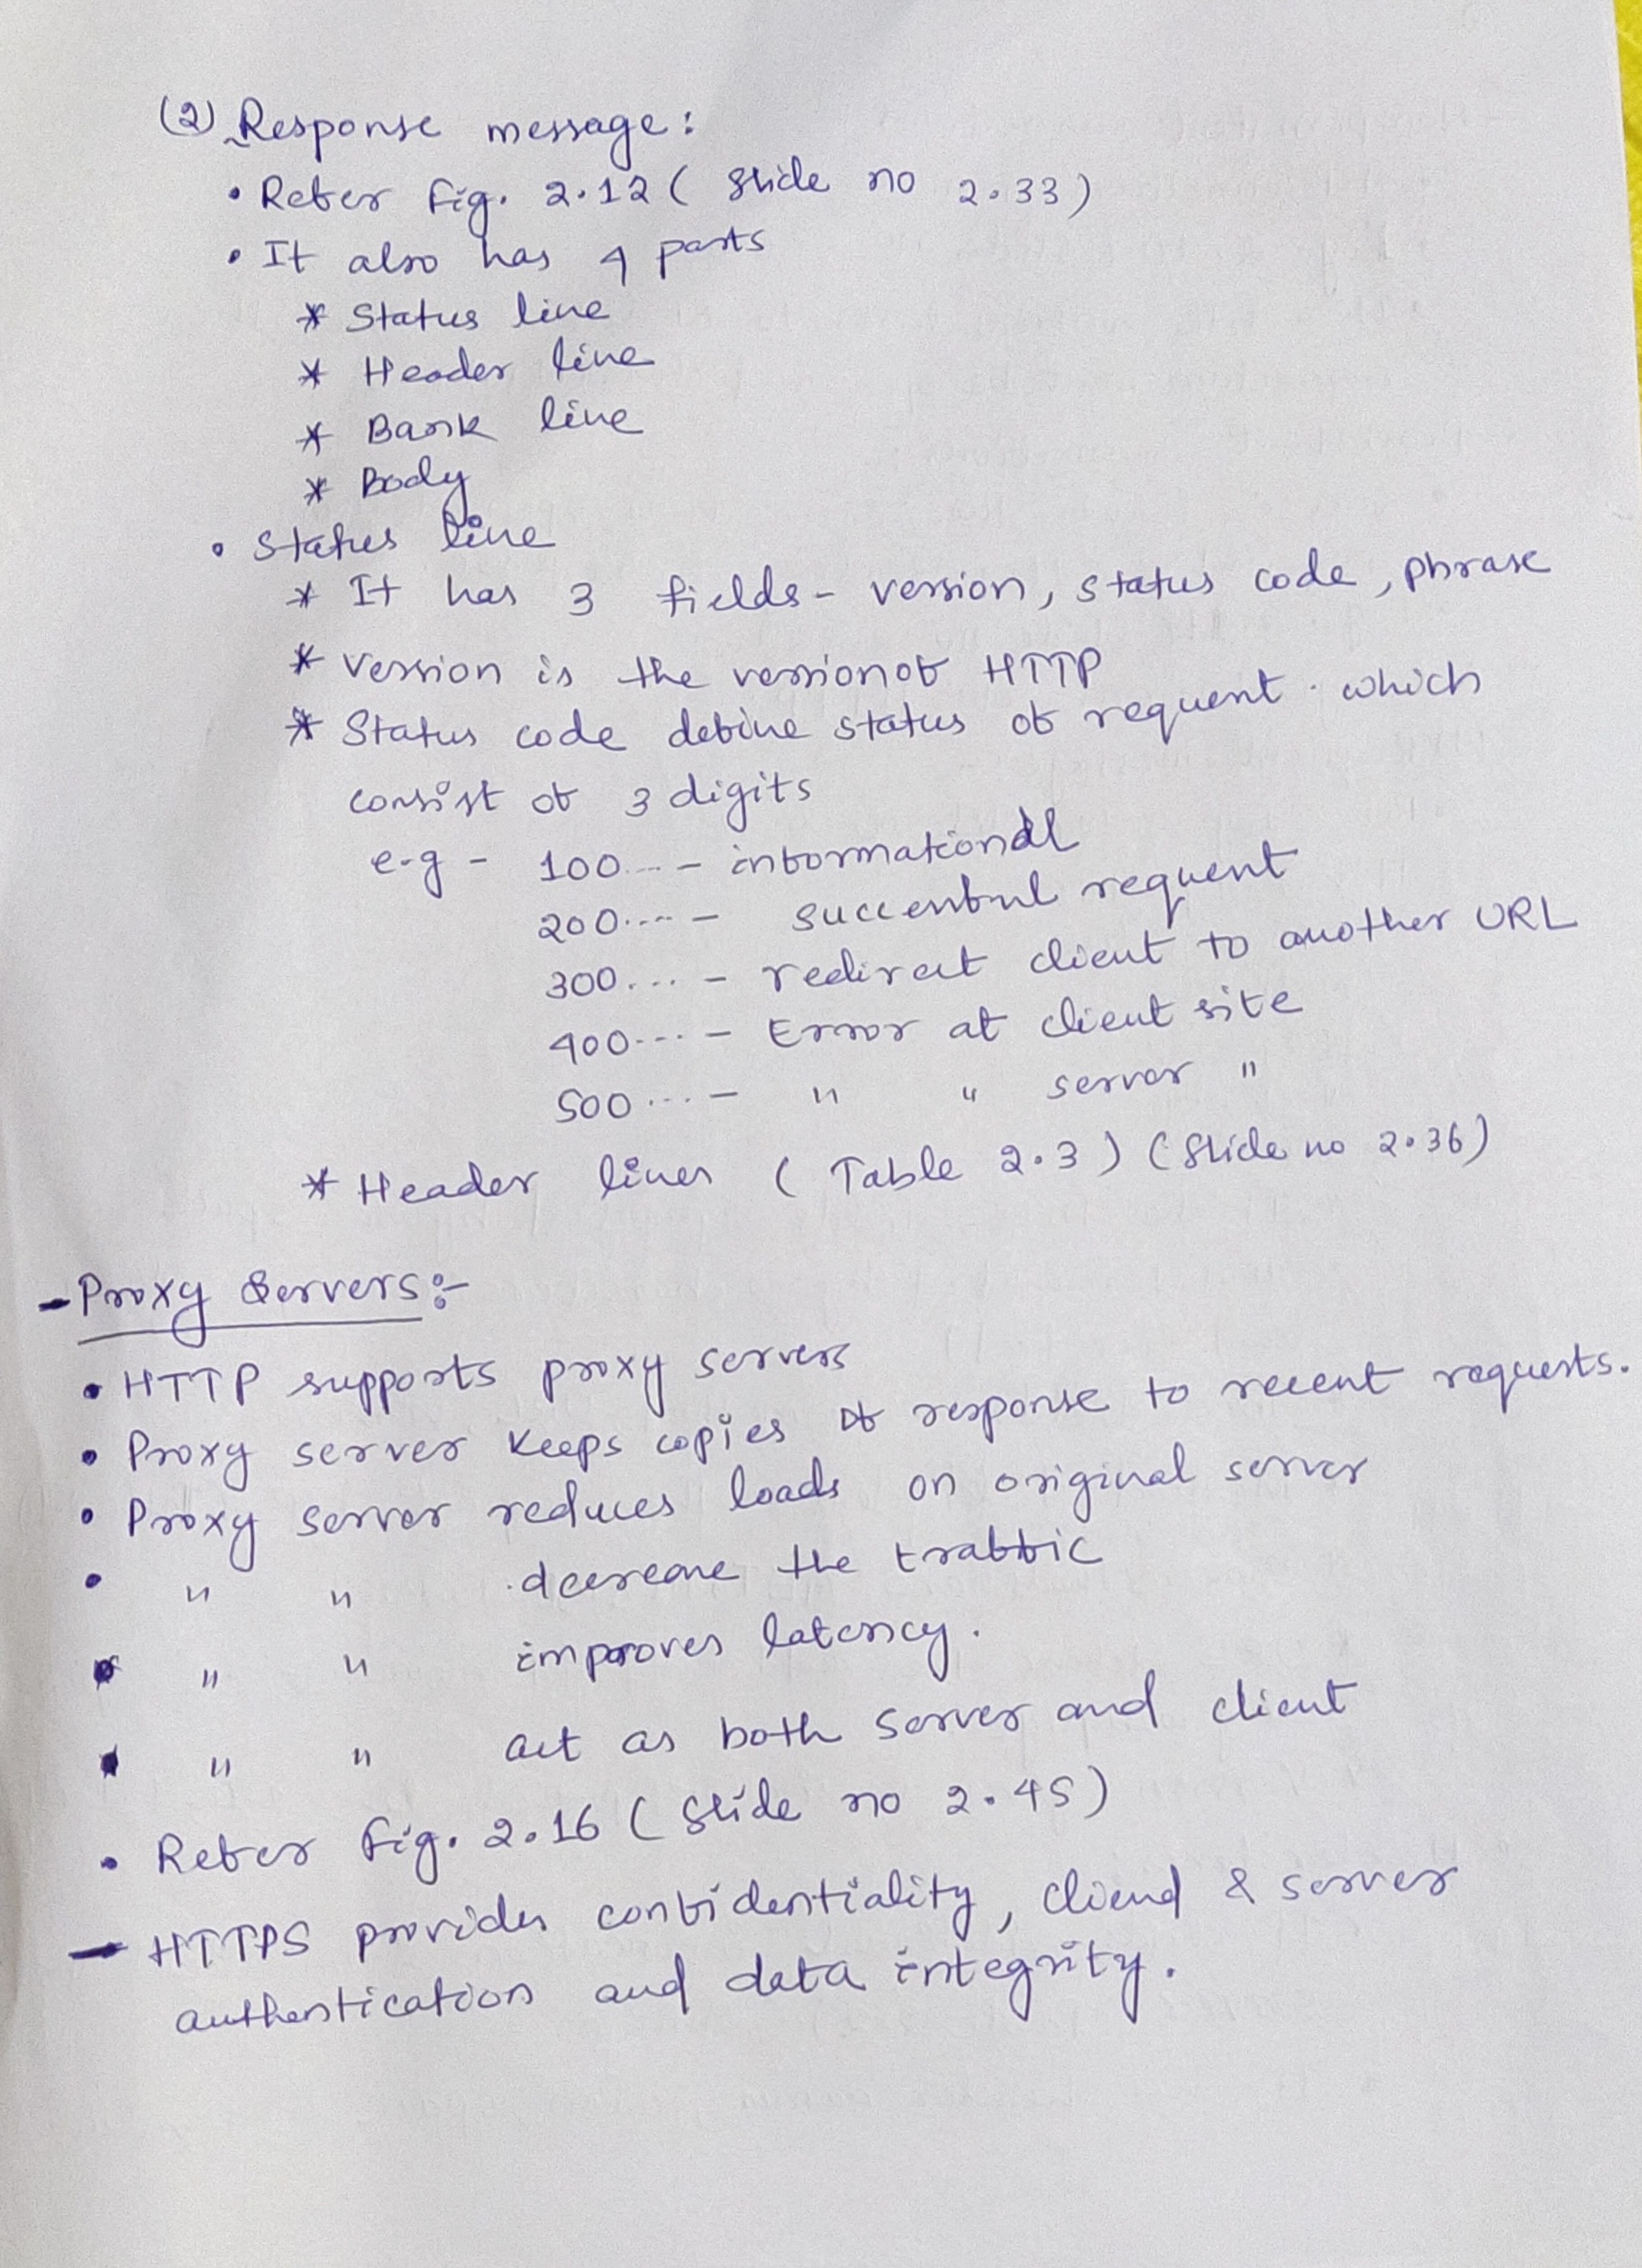 (2) Response message:
• Refer fig. 2.12 ( Slide no 2.33)
• It also has 4 parts
* Status line
* Header line
* Bank line
* Body
• Status line
* It has 3 fields - version, status code, phrase
* Version is the version of HTTP
* Status code define status of request which
consist of 3 digits
e.g - 100... - informational
200.... - successful request
300.... - redirect client to another URL
400.... - Error at client site
500.... - " " server "
* Header lines ( Table 2.3 ) (Slide no 2.36)
- Proxy Servers:-
• HTTP supports proxy servers
• Proxy server keeps copies of response to recent requests.
• Proxy server reduces loads on original server
• " " decrease the traffic
• " " improves latency.
• " " act as both server and client
• Refer fig. 2.16 ( Slide no 2.45)
- HTTPS provides confidentiality, cliend & server
authentication and data integrity.